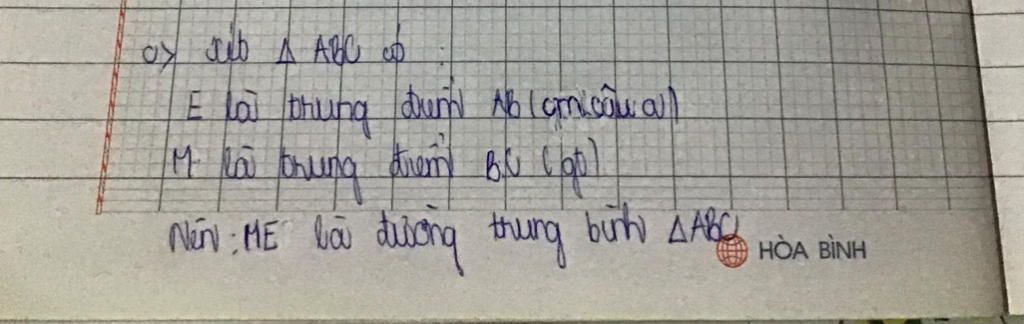 c) Xét Δ ABC có :
E là trung điểm AB (cm câu a)
M là trung điểm BC (gt)
Nên : ME là đường trung bình ΔABC
HÒA BÌNH